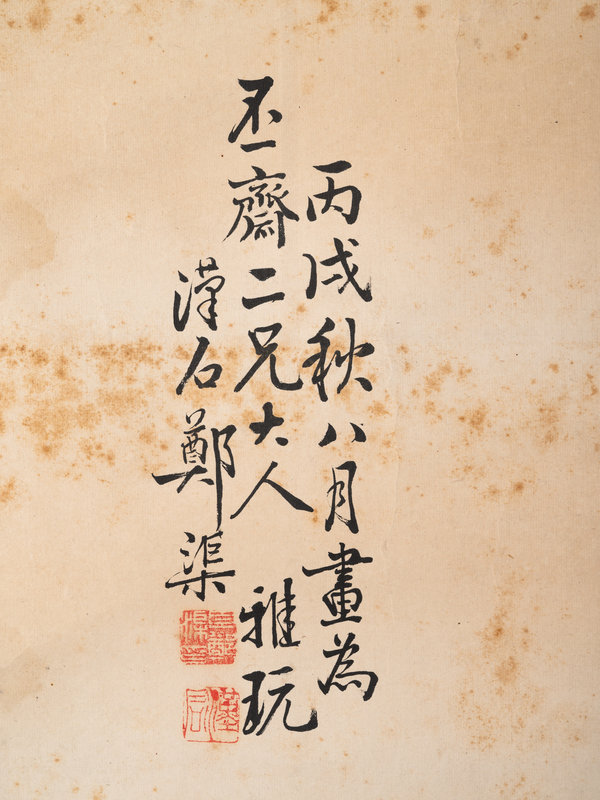 丙戌秋八月畫為
丕齋二兄大人雅玩
漢石鄭渠
漢石